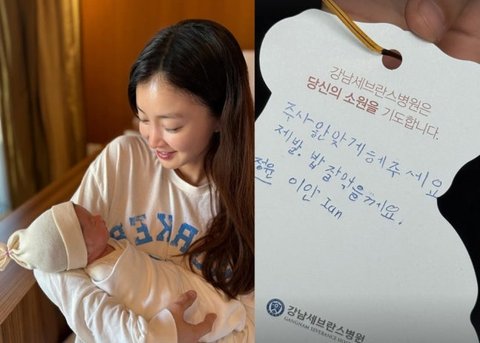 강남세브란스병원은
당신의 소원을 기도합니다.
주사 안맞게해주세요
제발. 밥 잘먹을께요.
이안 Ian
강남세브란스병원
GANGNAM SEVERANCE